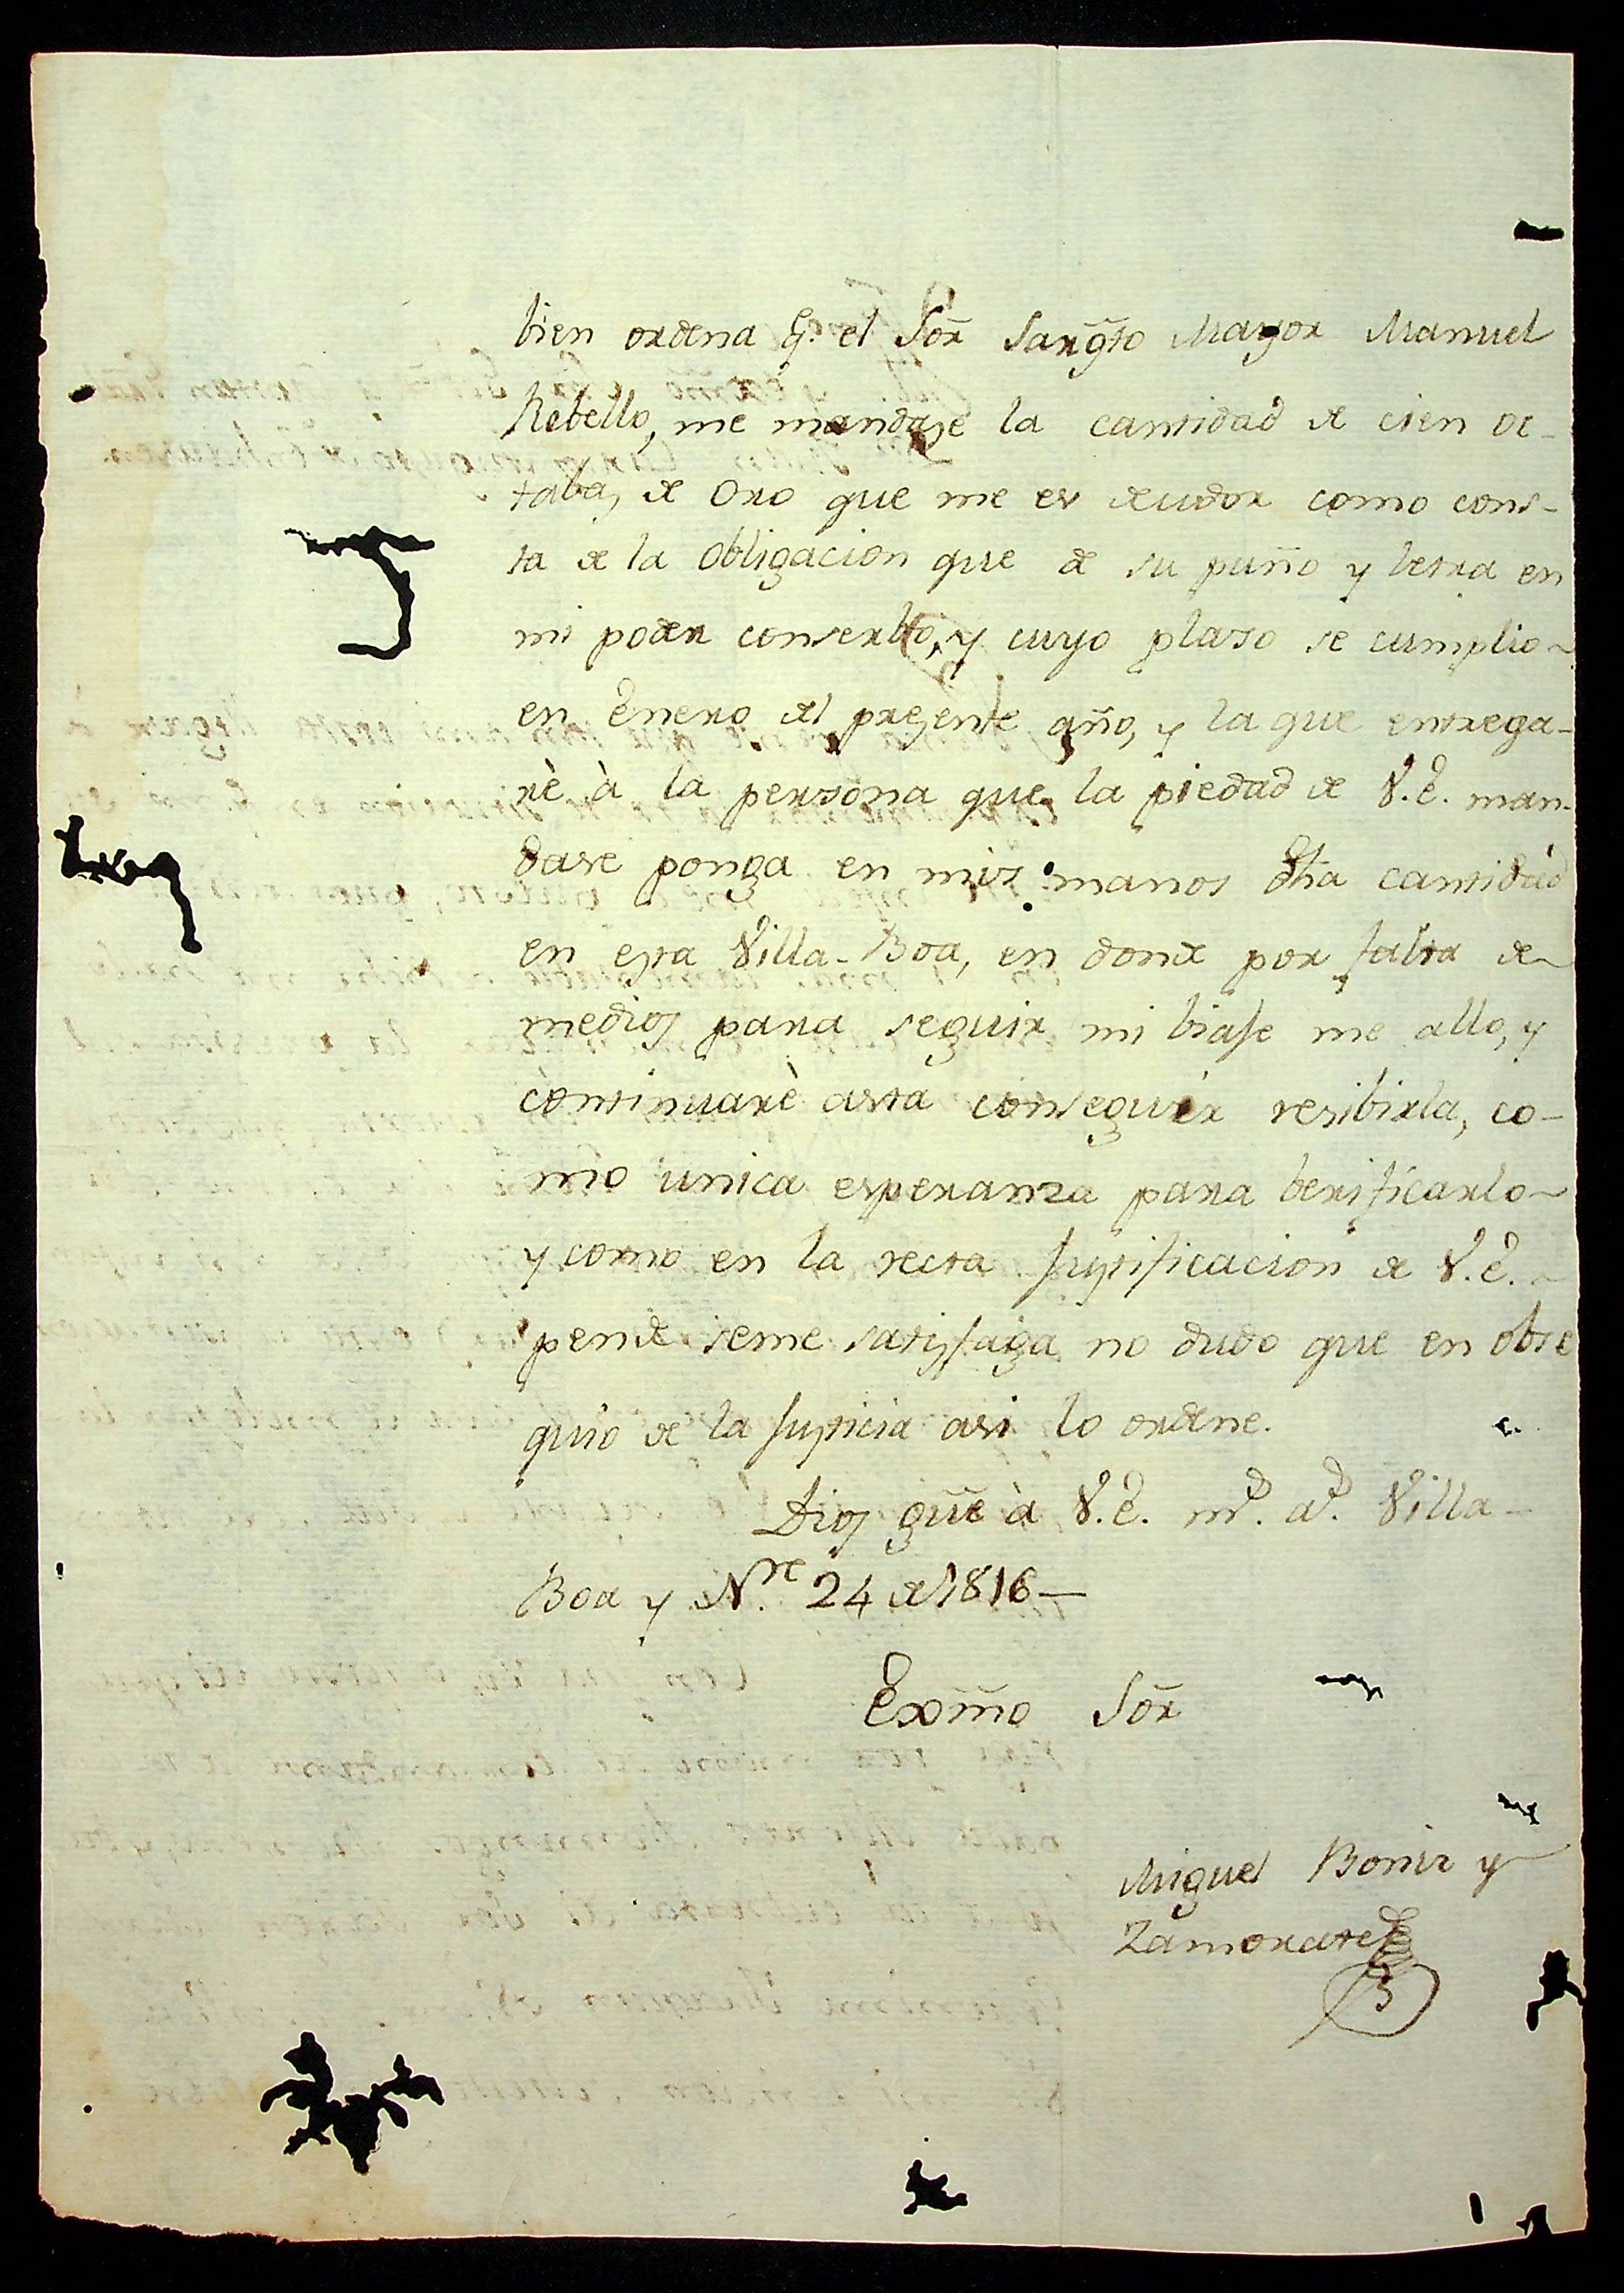 bien ordena q.e el Sor̃ Sargto Mayor Manuel
Rebello, me mandase la cantidad de cien oc-
tabas de Oro que me es deudor como cons-
ta de la obligacion que de su puño y letra en
mi poder conserbo, y cuyo plaso se cumplio
en Enero del presente año, y la que entrega-
rè à la persona que la piedad de V.E. man-
dase ponga en mis manos dha cantidad
en esta Villa-Boa, en donde por falta de
medios para seguir mi biaje me allo, y
continuarè asta conseguir resibirla, co-
mo unica esperanza para berificarlo
y como en la recta justificacion de V.E.
pende seme satisfaga no dudo que en obse
quio de la justicia asi lo ordene.
Dios güe à V.E. ms. as. Villa-
Boa y N.re 24 de 1816—
Exm̃o Sor̃
Miguel Bonir y
Zamorate